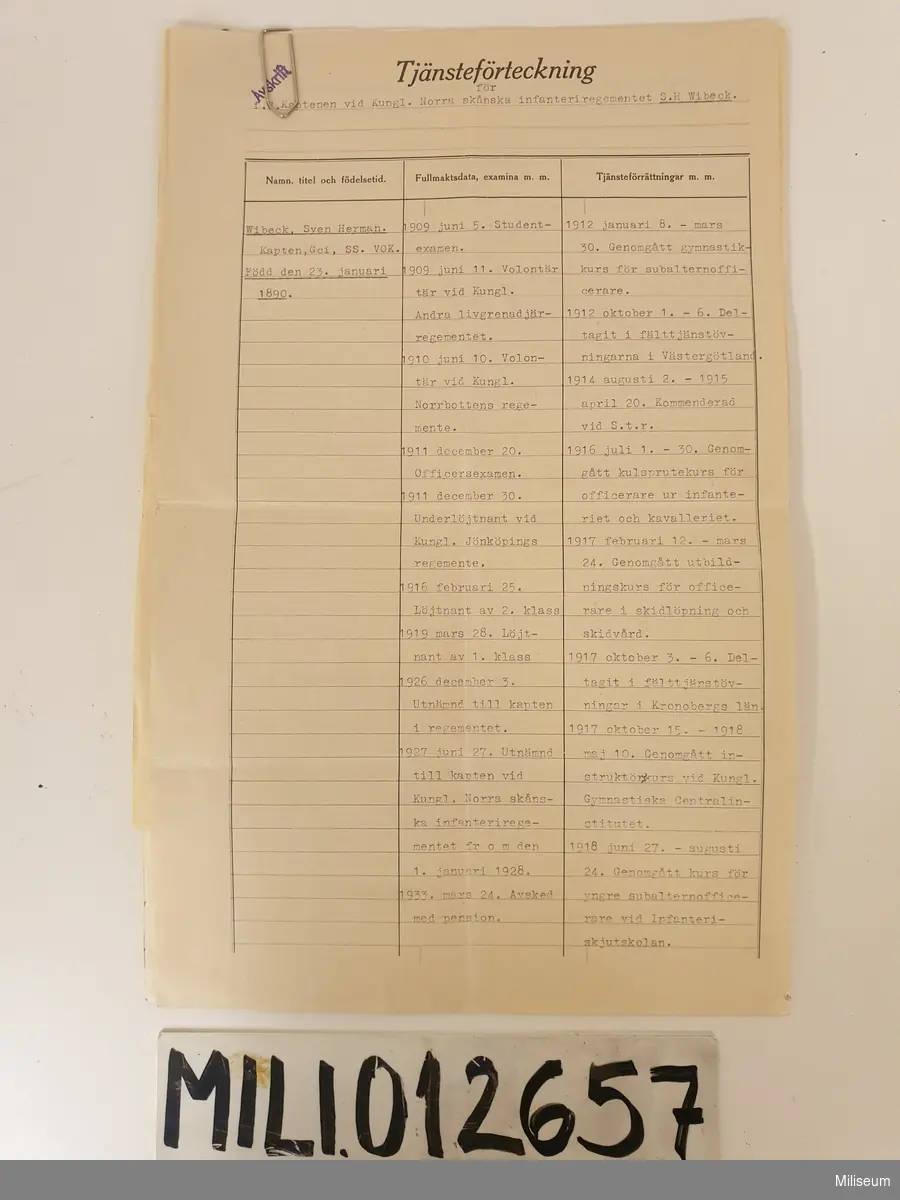 Avskrift
Tjänsteförteckning
för
f.d.Kaptenen vid Kungl. Norra skånska infanteriregementet S.H Wibeck.
Namn. titel och födelsetid.
Wibeck, Sven Herman.
Kapten,Gci, SS. VOK.
Född den 23. januari
1890.
Fullmaktsdata, examina m. m.
1909 juni 5. Student-
examen.
1909 juni 11. Volontär
tär vid Kungl.
Andra livgrenadjär-
regementet.
1910 juni 10. Volon-
tär vid Kungl.
Norrbottens rege-
mente.
1911 december 20.
Officersexamen.
1911 december 30.
Underlöjtnant vid
Kungl. Jönköpings
regemente.
1916 februari 25.
Löjtnant av 2. klass
1919 mars 28. Löjt-
nant av 1. klass
1926 december 3.
Utnämnd till kapten
i regementet.
1927 juni 27. Utnämnd
till kapten vid
Kungl. Norra skåns-
ka infanterirege-
mentet fr o m den
1. januari 1928.
1933. mars 24. Avsked
med pension.
Tjänsteförrättningar m. m.
1912 januari 8. - mars
30. Genomgått gymnastik-
kurs för subalternoffi-
cerare.
1912 oktober 1. - 6. Del-
tagit i fälttjänstöv-
ningarna i Västergötland.
1914 augusti 2. - 1915
april 20. Kommenderad
vid S.t.r.
1916 juli 1. - 30. Genom-
gått kulsprutekurs för
officerare ur infante-
riet och kavalleriet.
1917 februari 12. - mars
24. Genomgått utbild-
ningskurs för office-
rare i skidlöpning och
skidvård.
1917 oktober 3. - 6. Del-
tagit i fälttjänstöv-
ningar i Kronobergs län.
1917 oktober 15. - 1918
maj 10. Genomgått in-
struktörkurs vid Kungl.
Gymnastiska Centralin-
stitutet.
1918 juni 27. - augusti
24. Genomgått kurs för
yngre subalternoffice-
rare vid Infanteri-
skjutskolan.
MILI.012657
Miliseum